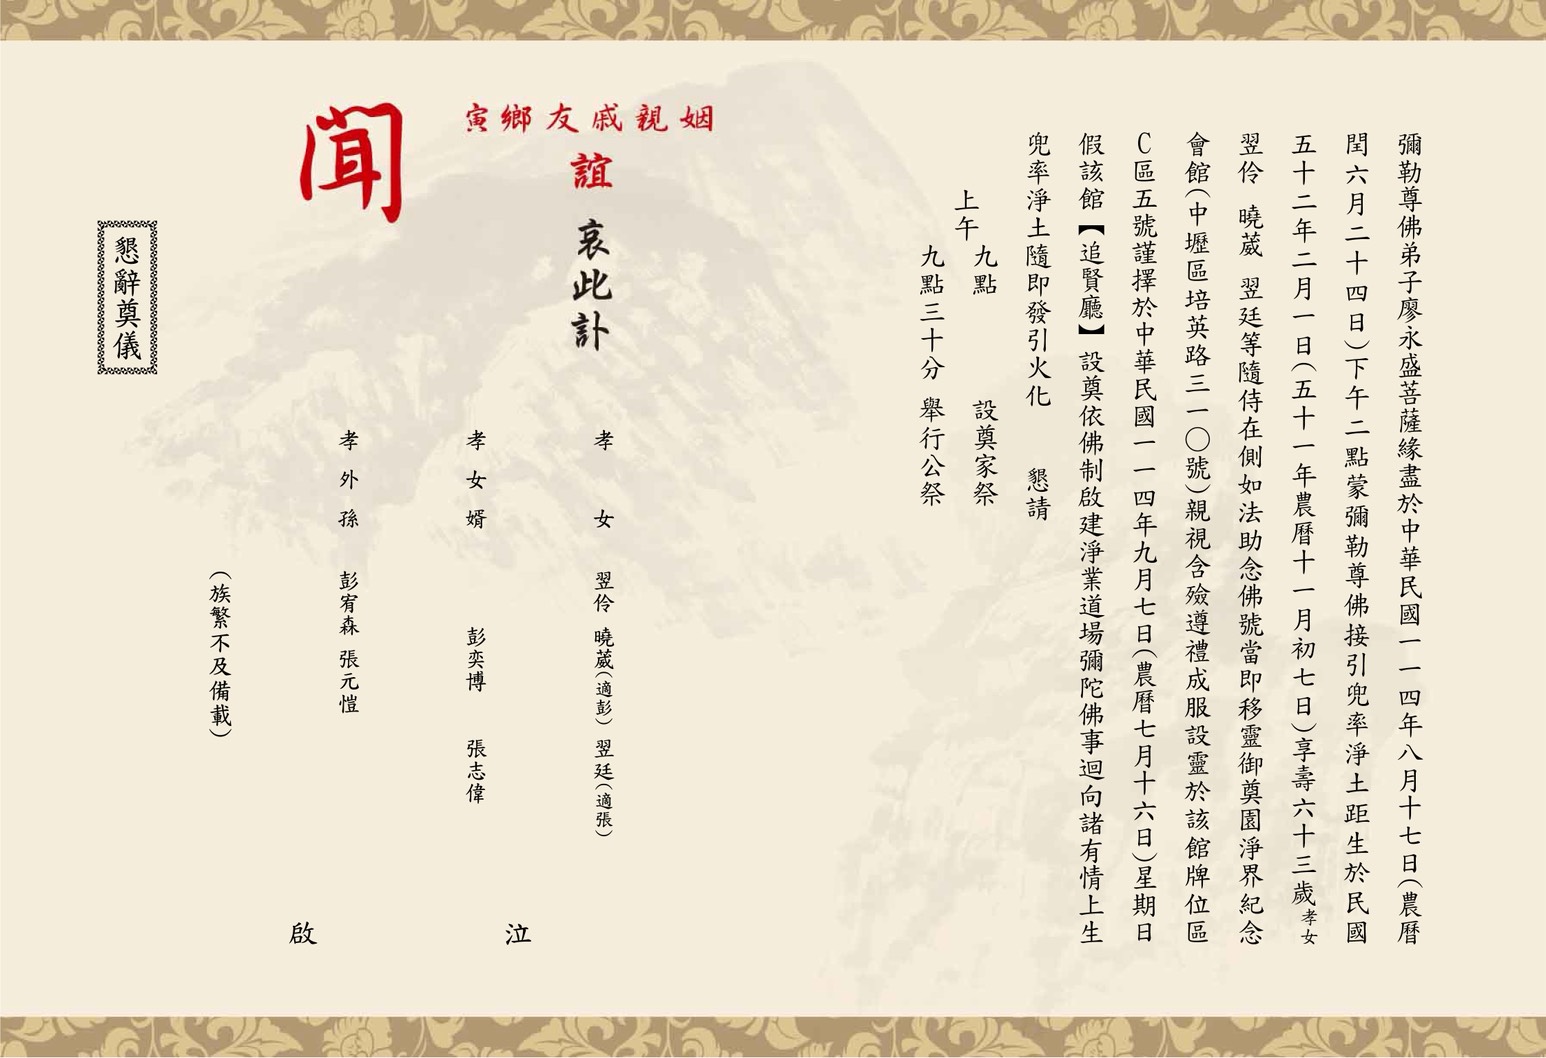 彌勒尊佛弟子廖永盛菩薩緣盡於中華民國一一四年八月十七日(農曆
閏六月二十四日)下午二點蒙彌勒尊佛接引兜率淨土距生於民國
五十二年二月一日(五十一年農曆十一月初七日)享壽六十三歲孝女
翌伶 曉葳 翌廷等隨侍在側如法助念佛號當即移靈御奠園淨界紀念
會館(中壢區培英路三一〇號)親視含殮遵禮成服設靈於該館牌位區
C區五號謹擇於中華民國一一四年九月七日(農曆七月十六日)星期日
假該館【追賢廳】設奠依佛制啟建淨業道場彌陀佛事迴向諸有情上生
兜率淨土隨即發引火化 懇請
上午
九點 設奠家祭
九點三十分 舉行公祭
姻親戚友鄉寅
誼
哀此訃
聞
孝女 翌伶 曉葳(適彭) 翌廷(適張)
孝女婿 彭奕博 張志偉
孝外孫 彭宥森 張元愷
(族繁不及備載)
泣
啟
懇辭奠儀